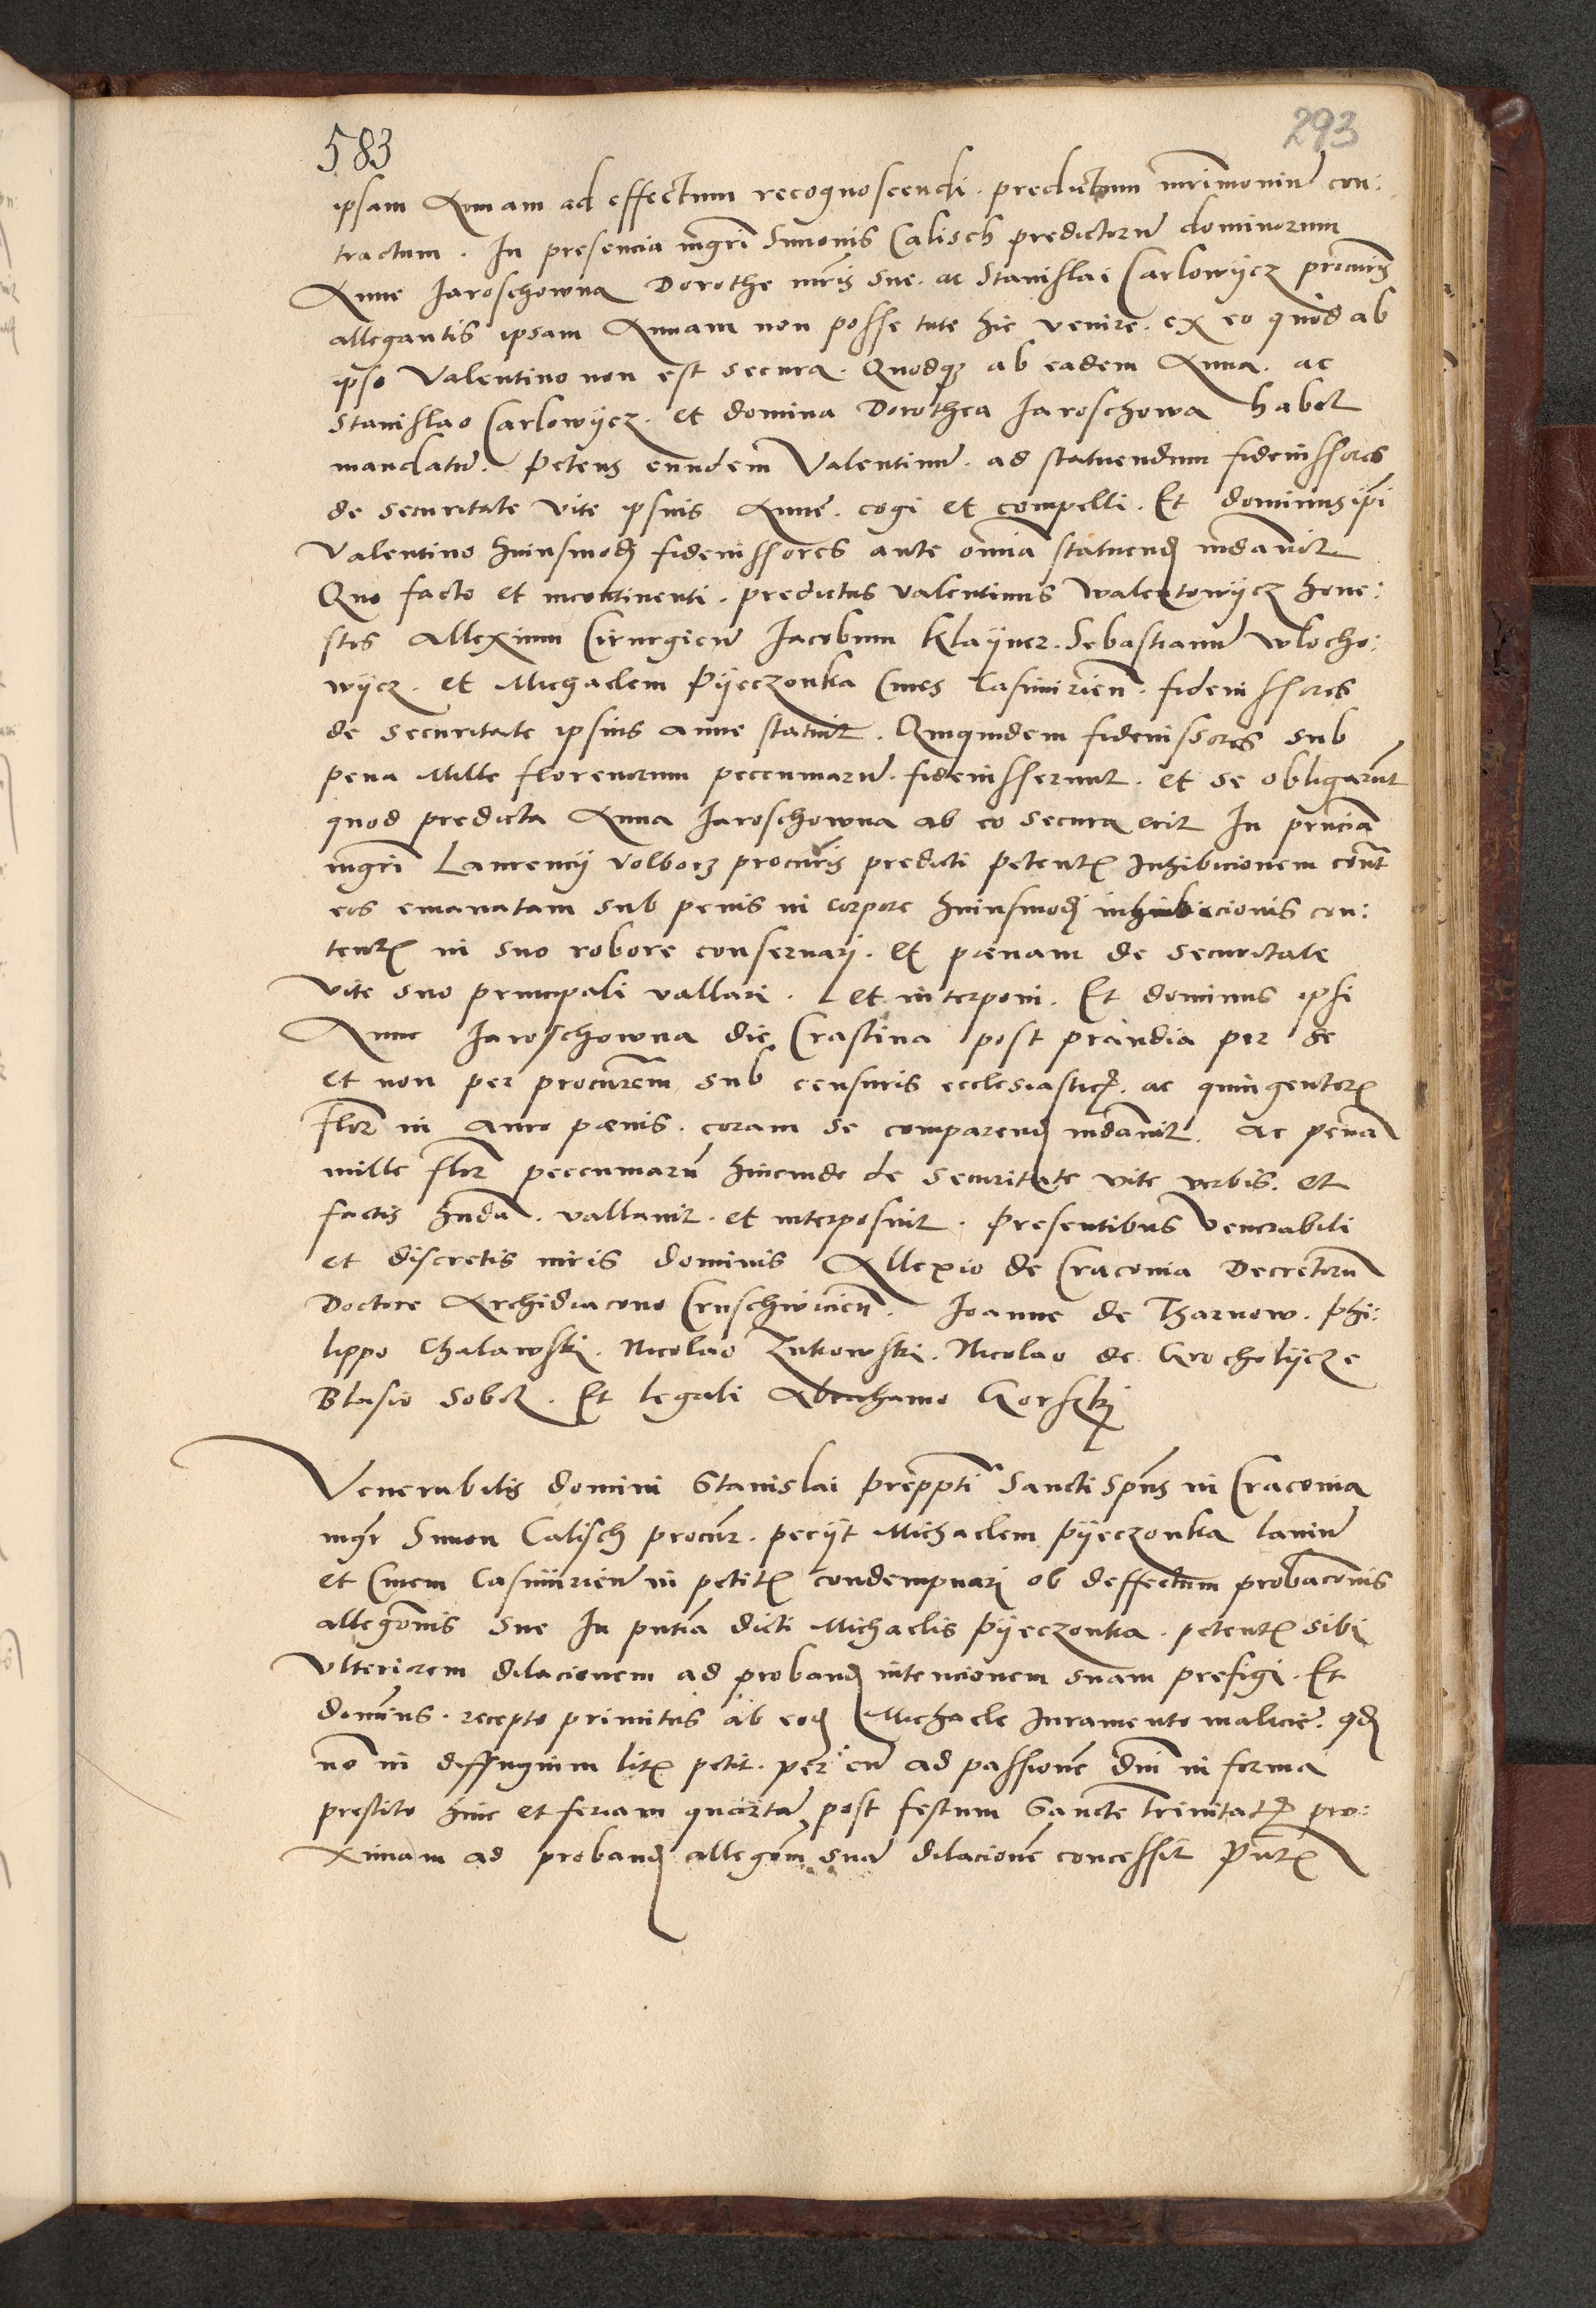 583
293
ipsam Annam ad effectum recognoscendi . predictum mrimoniu con:
tractum . In presencia mgri Simonis Calisch predictoru dominorum
Anne Iaroschowna Dorothe mris sue . ac Stanislai Carlowÿcz procuris
allegantis ipsam Annam non posse tute hic venire . ex eo quod ab
ipso Valentino non est secura . Quodq3 ab eadem Anna . ac
Stanislao Carlowÿcz . et domina Dorothea Iaroschowa habet
mandatu . Petens eundem Valentinu . ad statuendum fideiussores
de securitate vite ipsius Anne . cogi et compelli . Et dominus ipi
Valentino huiusmodj fideiussores ante omnia statuend mdauit
Quo facto et incontinenti . predictus Valentinus Walentowÿcz hone:
stos Allexium Cirurgicu Iacobum Klaÿner . Sebastianu Wlocho:
wÿcz . et Michaelem Pÿeczonka Cives Casimirien . fideiussores
de securitate ipsius Anne statuit . Quiquidem fideiussores sub
pena Mille florenorum peccuniaru . fideiusserunt . et se obligarunt
quod predicta Anna Iaroschowna ab eo secura erit In pncia
mgri Laurencij Volborz procuris predicti petent Inhibicionem cont
eos emanatam sub penis in corpore huiusmodj inhibicionis con:
tent in suo robore conseruarj . et pœnam de securitate
vite suo principali vallari . et interponi . Et dominus ipsi
Anne Iaroschowna die Crastina post prandia per se
et non per procurem sub censuris ecclesiastic . ac quingentor
flor in auro pœnis . coram se comparend mdauit . ac pena
mille flor peccuniaru hincinde de securitate vite verbis . et
factis hnda . vallauit . et interposuit . Presentibus Venerabili
et discretis viris dominis Allexio de Craconia Decretoru
Doctore Archidiacono Cruschwicien . Ioanne de Tharnow . Phi:
lippo Chalawski . Nicolao Zukowski . Nicolao de Grocholÿcze
Blasio Sobol . Et legali Abrahamo Gorsskj
Venerabilis domini Stanislai preppti Sancti Spus in Craconia
mgr Simon Calisch procur . pecijt Michaelem Pÿeczonka laniu
et Civem Casimirien in petit condempnarj ob deffectum probaconis
allegonis sue In pntia dicti Michaelis Pÿeczonka . petent sibi
Vlteriorem dilacionem ad proband intencionem suam prefigi . Et
dominus . recepto primitus ab eod Michaele Iuramento malicie . qd
no in diffugium lit petit . per eu ad passione dni in forma
prestito hinc et feriam quarta post festum Sancte Trinitat pro:
ximam ad proband allegom sua dilacione concessit Pnt